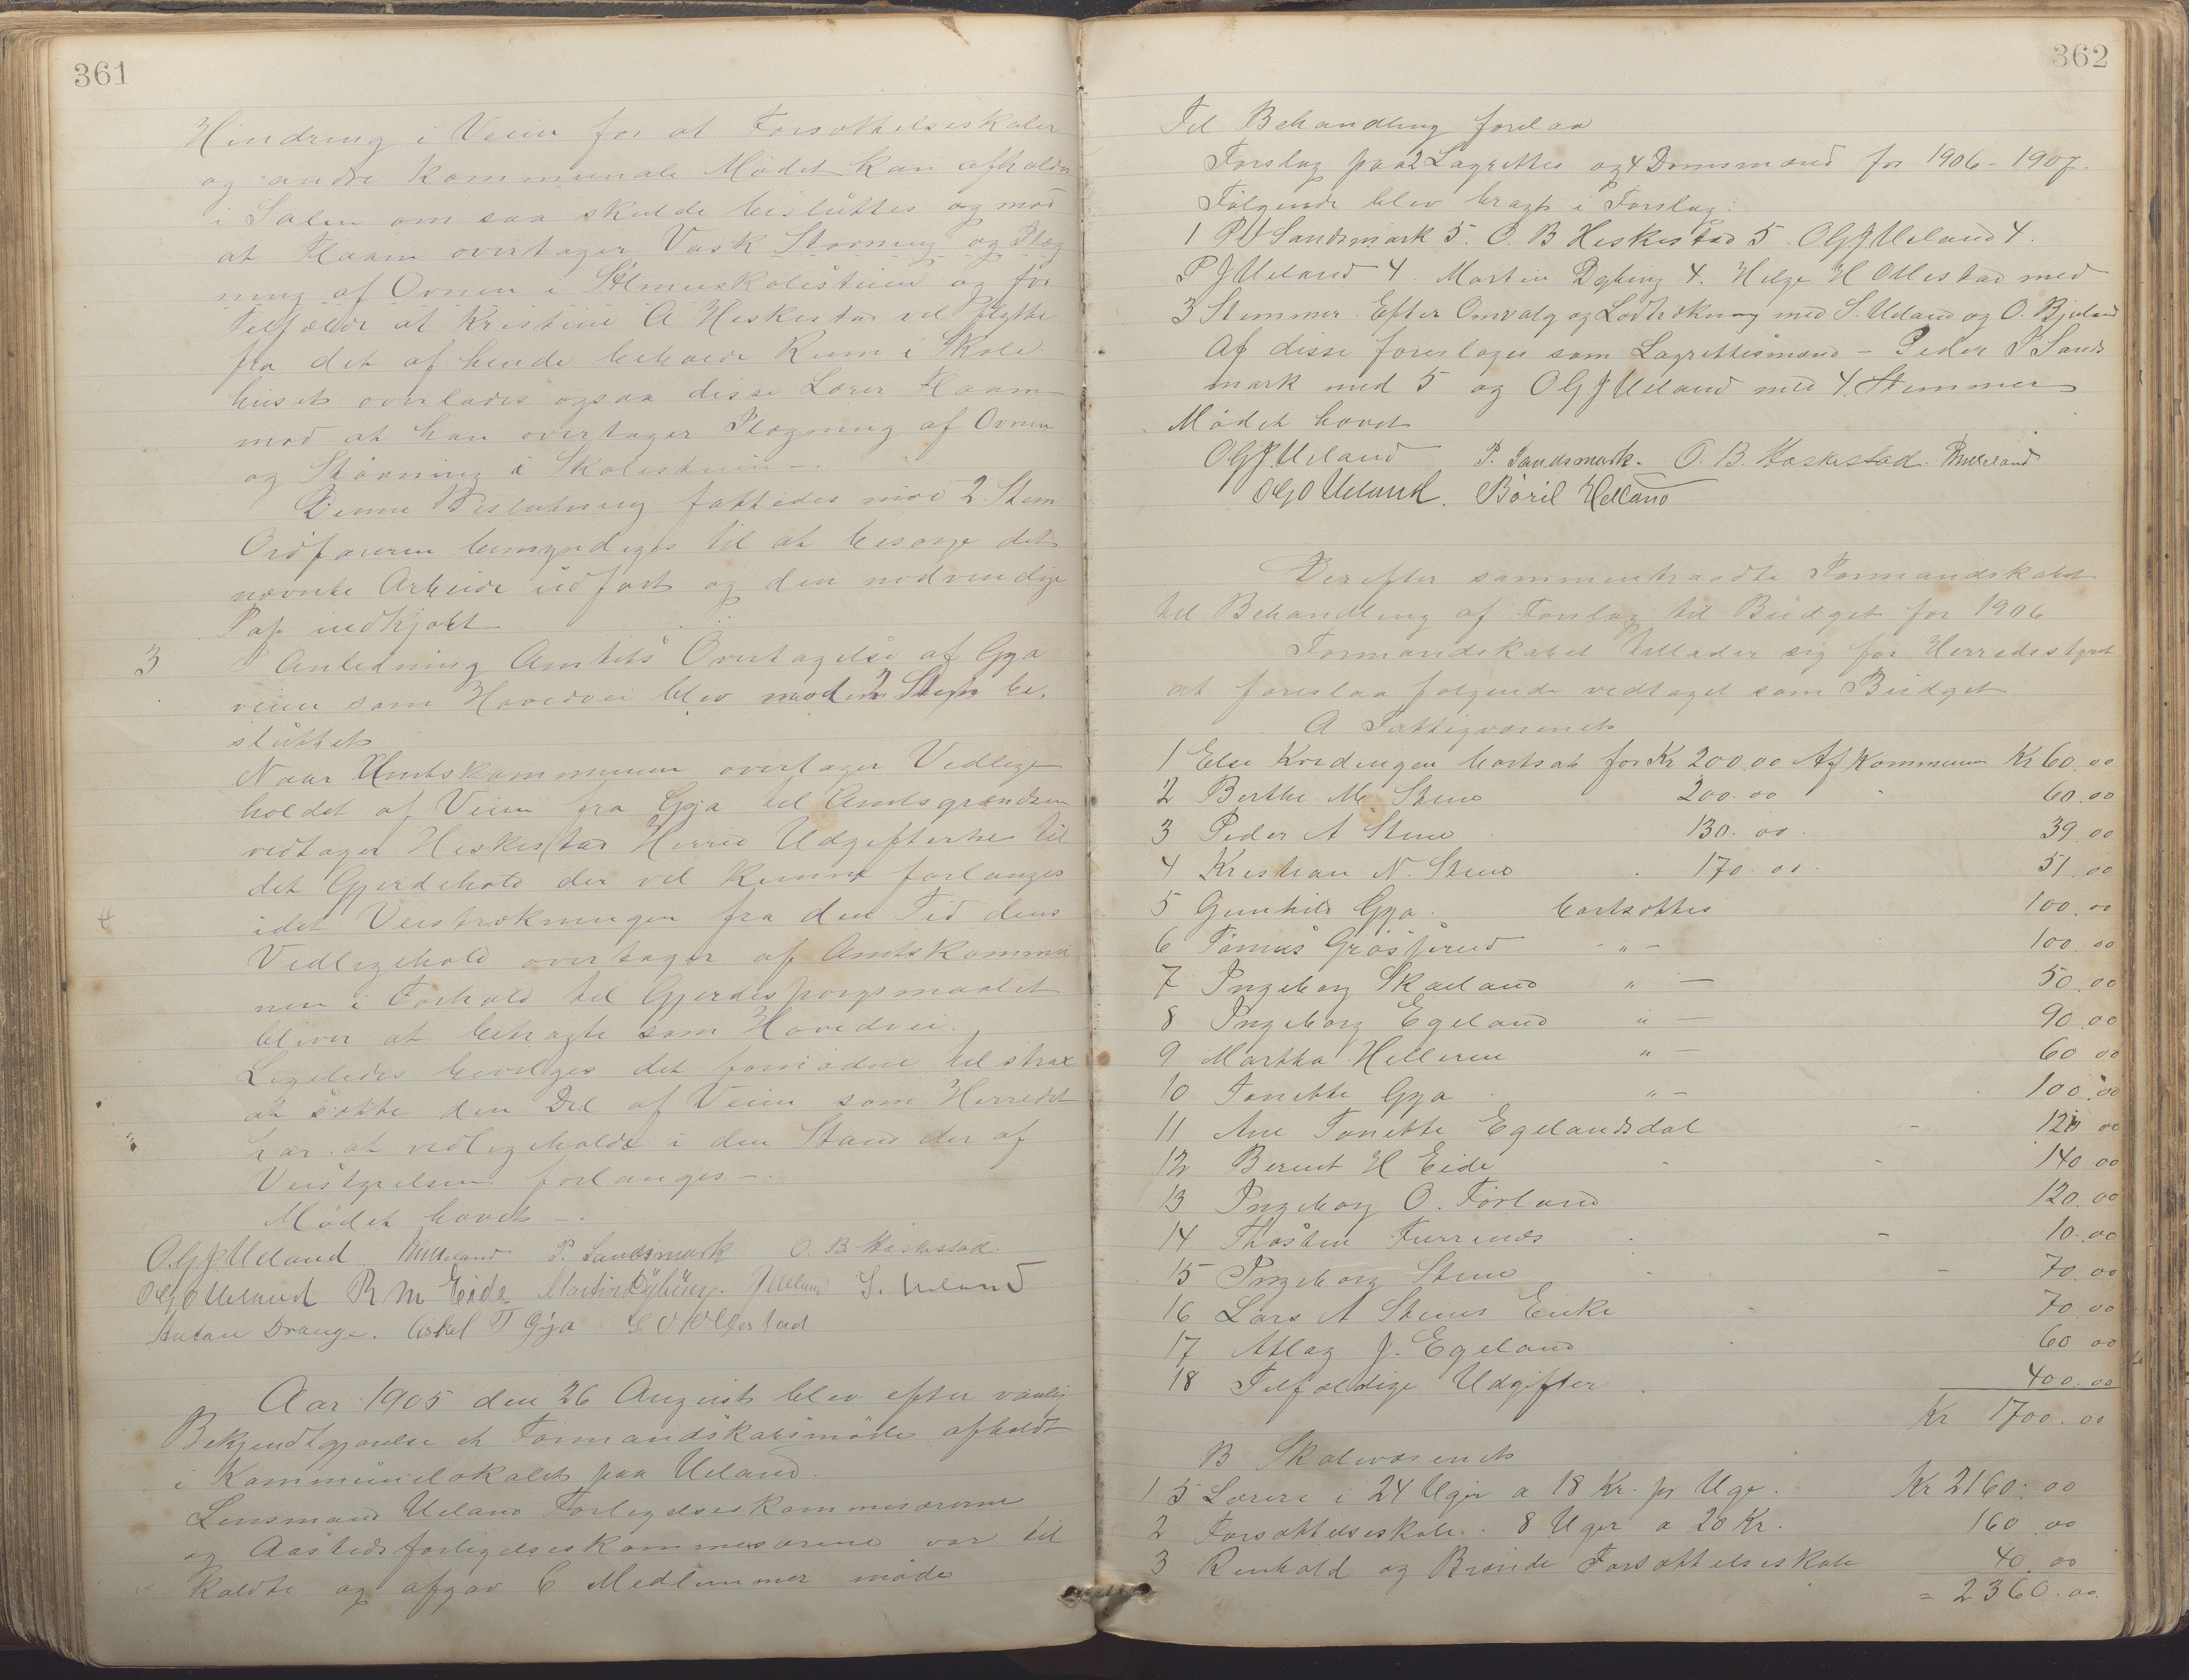 361
Hindring i Veien for at Forsættelseskoler
og andre kommunale Mødet kan afholdes
i Salen om saa skulde besluttes og mod
at Haam overtager Vask Støvning og Plæg
ning af Ovnen i Almueskolestuen og for
Tilfælde at Kristine A Heskestad vil flytte
fra det af hende beboede Rum i Skole
huset overlades ogsaa disse Lærer Haam
mod at han overtager Plægning af Ovnen
og Støvning i Skolestuen -.
Denne Beslutning fattedes mod 2 Stem
Ordføreren bemyndiges til at besørge det
nævnte Arbeide udført og den nødvendige
Pap indkjøbt
3 I Anledning Amtets Overtagelse af Gya
veien som Hovedvei blev mod en Stem be-
sluttet
Naar Amtskommunen overtager Vedlige
holdet af Veien fra Gya til Amtsgrændsen
vedtager Heskestad Herred Udgifterne til
det Gjerdehold der vil kunne forlanges
idet Veistrækningen fra den Tid dens
Vedligehold overtages af Amtskommu
nen i Forhold til Gjerdespørgsmaalet
bliver at betragte som Hovedvei.
Ligeledes bevilges det fornødne til strax
at sætte den Del af Veien som Herredet
har at vedligeholde i den Stand der af
Veistyrelsen forlanges -.
Mødet hævet -.
O. G. J. Ueland P. Sandsmark O. B. Heskestad.
Ole O Ueland R M Eide Martin Dybing. J Ueland S. Ueland
Antan Drange. Askel T Gya
Aar 1905 den 26 August blev efter vanlig
Bekjendtgjørelse et Formandskabsmøde afholdt
i Kommunelokalet paa Ueland.
Lensmand Ueland Forligelseskommisærerne
og Aastedsforligelseskommisærerne var til
kaldte og afgav 6 Medlemmer møde
362
Til Behandling forelaa
Forslag paa 2 Lagrettes og 4 Domsmænd for 1906-1907.
Følgende blev bragt i Forslag:
1 P P Sandsmark 5. O. B Heskestad 5. O G J Ueland 4.
P J Ueland 4. Martin Dybing 4. Helge H Ollestad med
3 Stemmer Efter Omvalg og Lodtrækning med S. Ueland og O. Bjuland
Af disse foreslages som Lagrettesmænd - Peder P Sands
mark med 5 og O G J Ueland med 4. Stemmer
Mødet hævet
O G J. Ueland P. Sandsmark. O. B. Heskestad.
Ole O Ueland. Børil Helland
Derefter sammentraadte Formandskabet
til Behandling af Forslag til Budget for 1906
Formandskabet tillader sig for Herredstyret
at foreslaa følgende vedtaget som Budget
A Fattigvæsenet
1 Else Kvedingen bortsat for Kr 200.00 Af Kommunen Kr 60.00
2 Berthe M. Stene 200.00 60.00
3 Peder A Stene 130.00. 39.00
4 Kristian N. Stene 170.00. 51.00
5 Gunhild Gya. bortsættes 100.00
6 Tønnes Grøsfjeld - " - 100.00
7 Ingeborg Skaeland " - 50.00
8 Ingeborg Egeland " - 90.00
9 Martha Helleren " - 60 00
10 Tonette Gya " - 100.00
11 Ane Tonette Egelandsdal 120 00
12 Berent H Eide 140 00
13 Ingeborg O. Førland 120.00
14 Thosten Furrenes 10.00
15 Ingeborg Stene 70.00
16 Lars A Stenes Enke 70.00
17 Atlag J. Egeland 60 00
18 Tilfældige Udgifter 400.00
Kr 1700.00
B Skolevæsenet
1 5 Lærere i 24 Uger a 18 Kr. pr Uge. Kr 2160.00
2 Forsættelseskole. 8 Uger a 20 Kr. 160 00
3 Renhold og Brænde Forsættelseskole 40.00
= 2360.00.